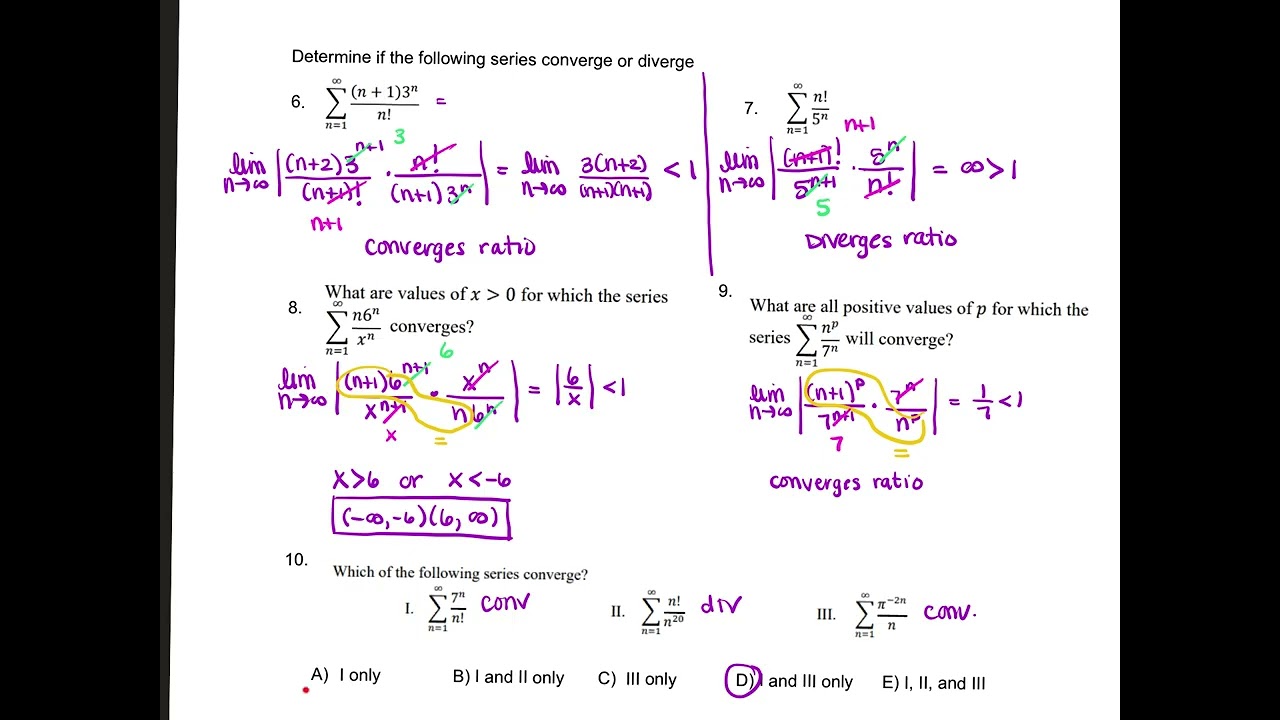 Determine if the following series converge or diverge
6. ∞ ∑ n=1 (n + 1)3ⁿ / n! =
lim n→∞ | (n+2)3ⁿ⁺¹ 3 / (n+1)! n+1 · n! / (n+1)3ⁿ | = lim n→∞ 3(n+2) / (n+1)(n+1) < 1
Converges ratio
7. ∞ ∑ n=1 n! / 5ⁿ
lim n→∞ | (n+1)! n+1 / 5ⁿ⁺¹ 5 · 5ⁿ / n! | = ∞ > 1
Diverges ratio
8. What are values of x > 0 for which the series
∞ ∑ n=1 n6ⁿ / xⁿ converges?
lim n→∞ | (n+1)6ⁿ⁺¹ 6 / xⁿ⁺¹ x · xⁿ / n6ⁿ | = | 6/x | < 1
=
x>6 or x<-6
(-∞,-6)(6,∞)
9. What are all positive values of p for which the
series ∞ ∑ n=1 nᵖ / 7ⁿ will converge?
lim n→∞ | (n+1)ᵖ / 7ⁿ⁺¹ 7 · 7ⁿ / nᵖ | = 1/7 < 1
=
converges ratio
10. Which of the following series converge?
I. ∞ ∑ n=1 7ⁿ / n! conv II. ∞ ∑ n=1 n! / n²⁰ div III. ∞ ∑ n=1 π⁻²ⁿ / n conv.
A) I only B) I and II only C) III only D) I and III only E) I, II, and III